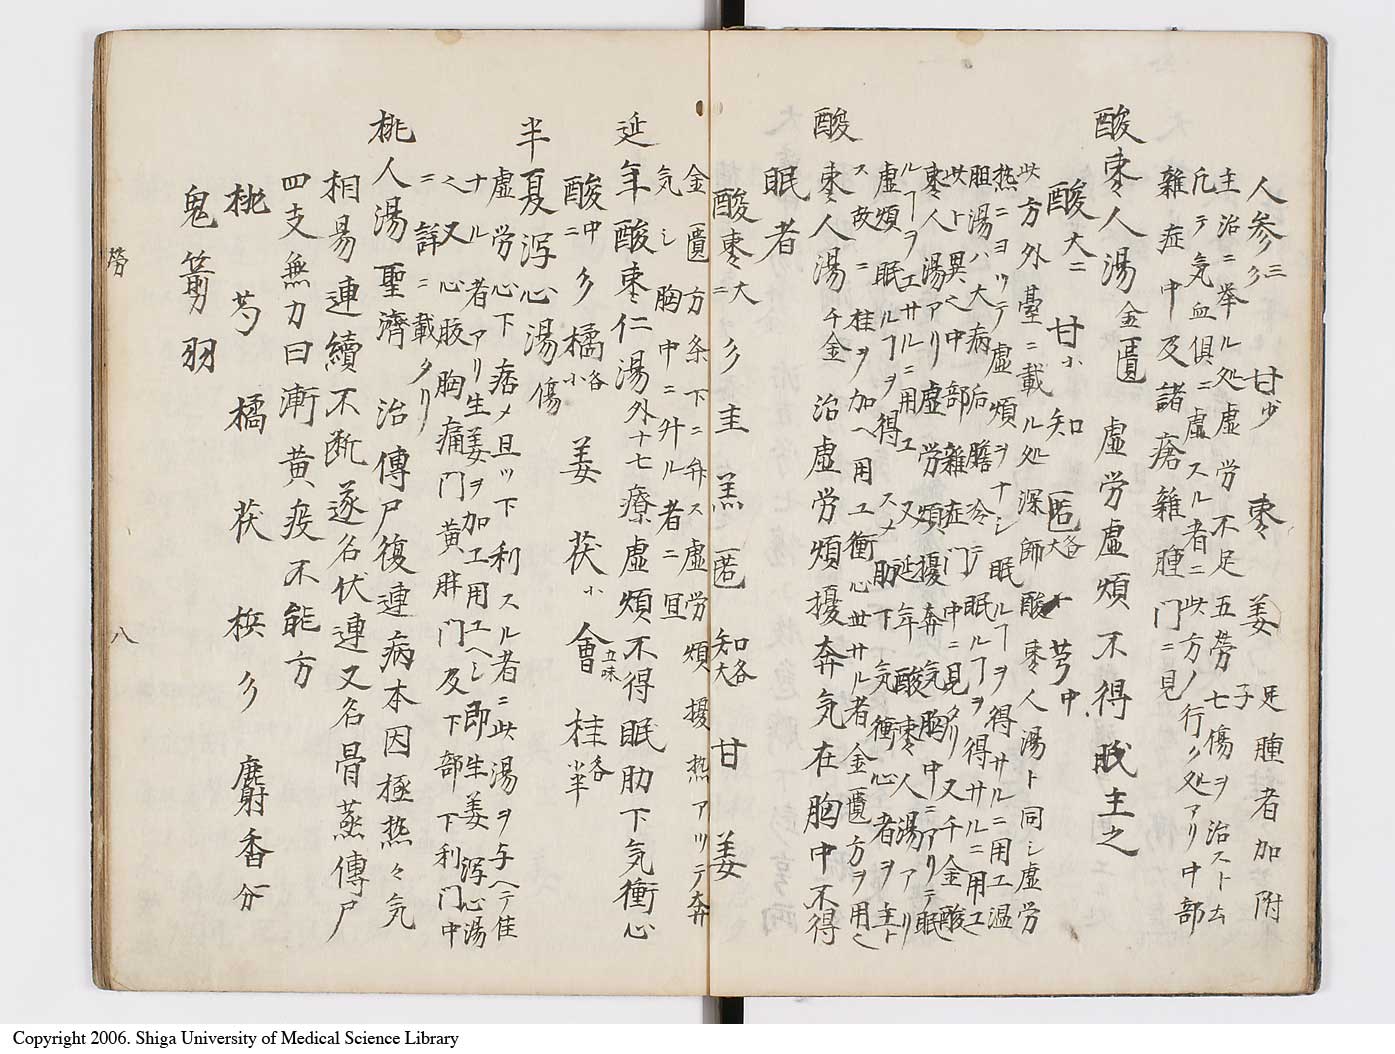 人参三分 甘少 棗 姜 足腫者加附子
主治ニ挙ル処虚労不足五労七傷ヲ治スト云
凡テ気血俱ニ虚スル者ニ此方ノ行ク処アリ中部
雜症中及諸瘡雜腫門ニ見
酸棗人湯 金匱 虚労虚煩不得眠主之
酸大ニ 甘小 知 匿各大 芎中
此方外臺ニ載ル処深師酸棗人湯ト同シ虚労
熱ニヨッテ虚煩ヲナシ眠ルヿヲ得サルニ用工温
胆湯ハ大病后膽冷テ眠ルヿヲ得サルニ用工
此ト異ヘ中部雜症门中ニ見タリ又千金酸
棗人湯アリ虚労煩擾奔気胸中ニアリテ眠
ルヿヲエサルニ用エ又延年酸棗人湯アリ
虚煩眠ルヿヲ得スメ肋下気衝心者ヲ主ト
ス故ニ桂ヲ加ヘ用ユ衝心丗サル者金匱方ヲ用ヘ
酸棗人湯 千金 治虚労煩擾奔気在胸中不得
眠者
酸棗大ニ 分 圭 羔 匿 知各大 甘 姜
金匱方条下ニ弁ス虚労煩擾热アッテ奔
気シ胸中ニ升ル者ニ冝
延年酸棗仁湯 外十七 療虚煩不得眠肋下気衝心
酸中ニ 分 橘各小 姜 茯小 會立味 桂各半
半夏泻心湯 傷
虚労心下痞メ且ツ下利スル者ニ此湯ヲ与ヘテ佳
ナル者アリ生姜ヲ加エ用ユヘシ即生姜泻心湯
ヘ又心腹胸痛门黄胖门及下部下利门中
ニ詳ニ載タリ
桃人湯 聖濟 治傳尸復連病本因極热々気
相易連續不断遂名伏連又名骨蒸傳尸
四支無力曰漸黄疫不能方
桃 芍 橘 茯 梹分 麝香 分
鬼箭羽
勞
八
Copyright 2006. Shiga University of Medical Science Library